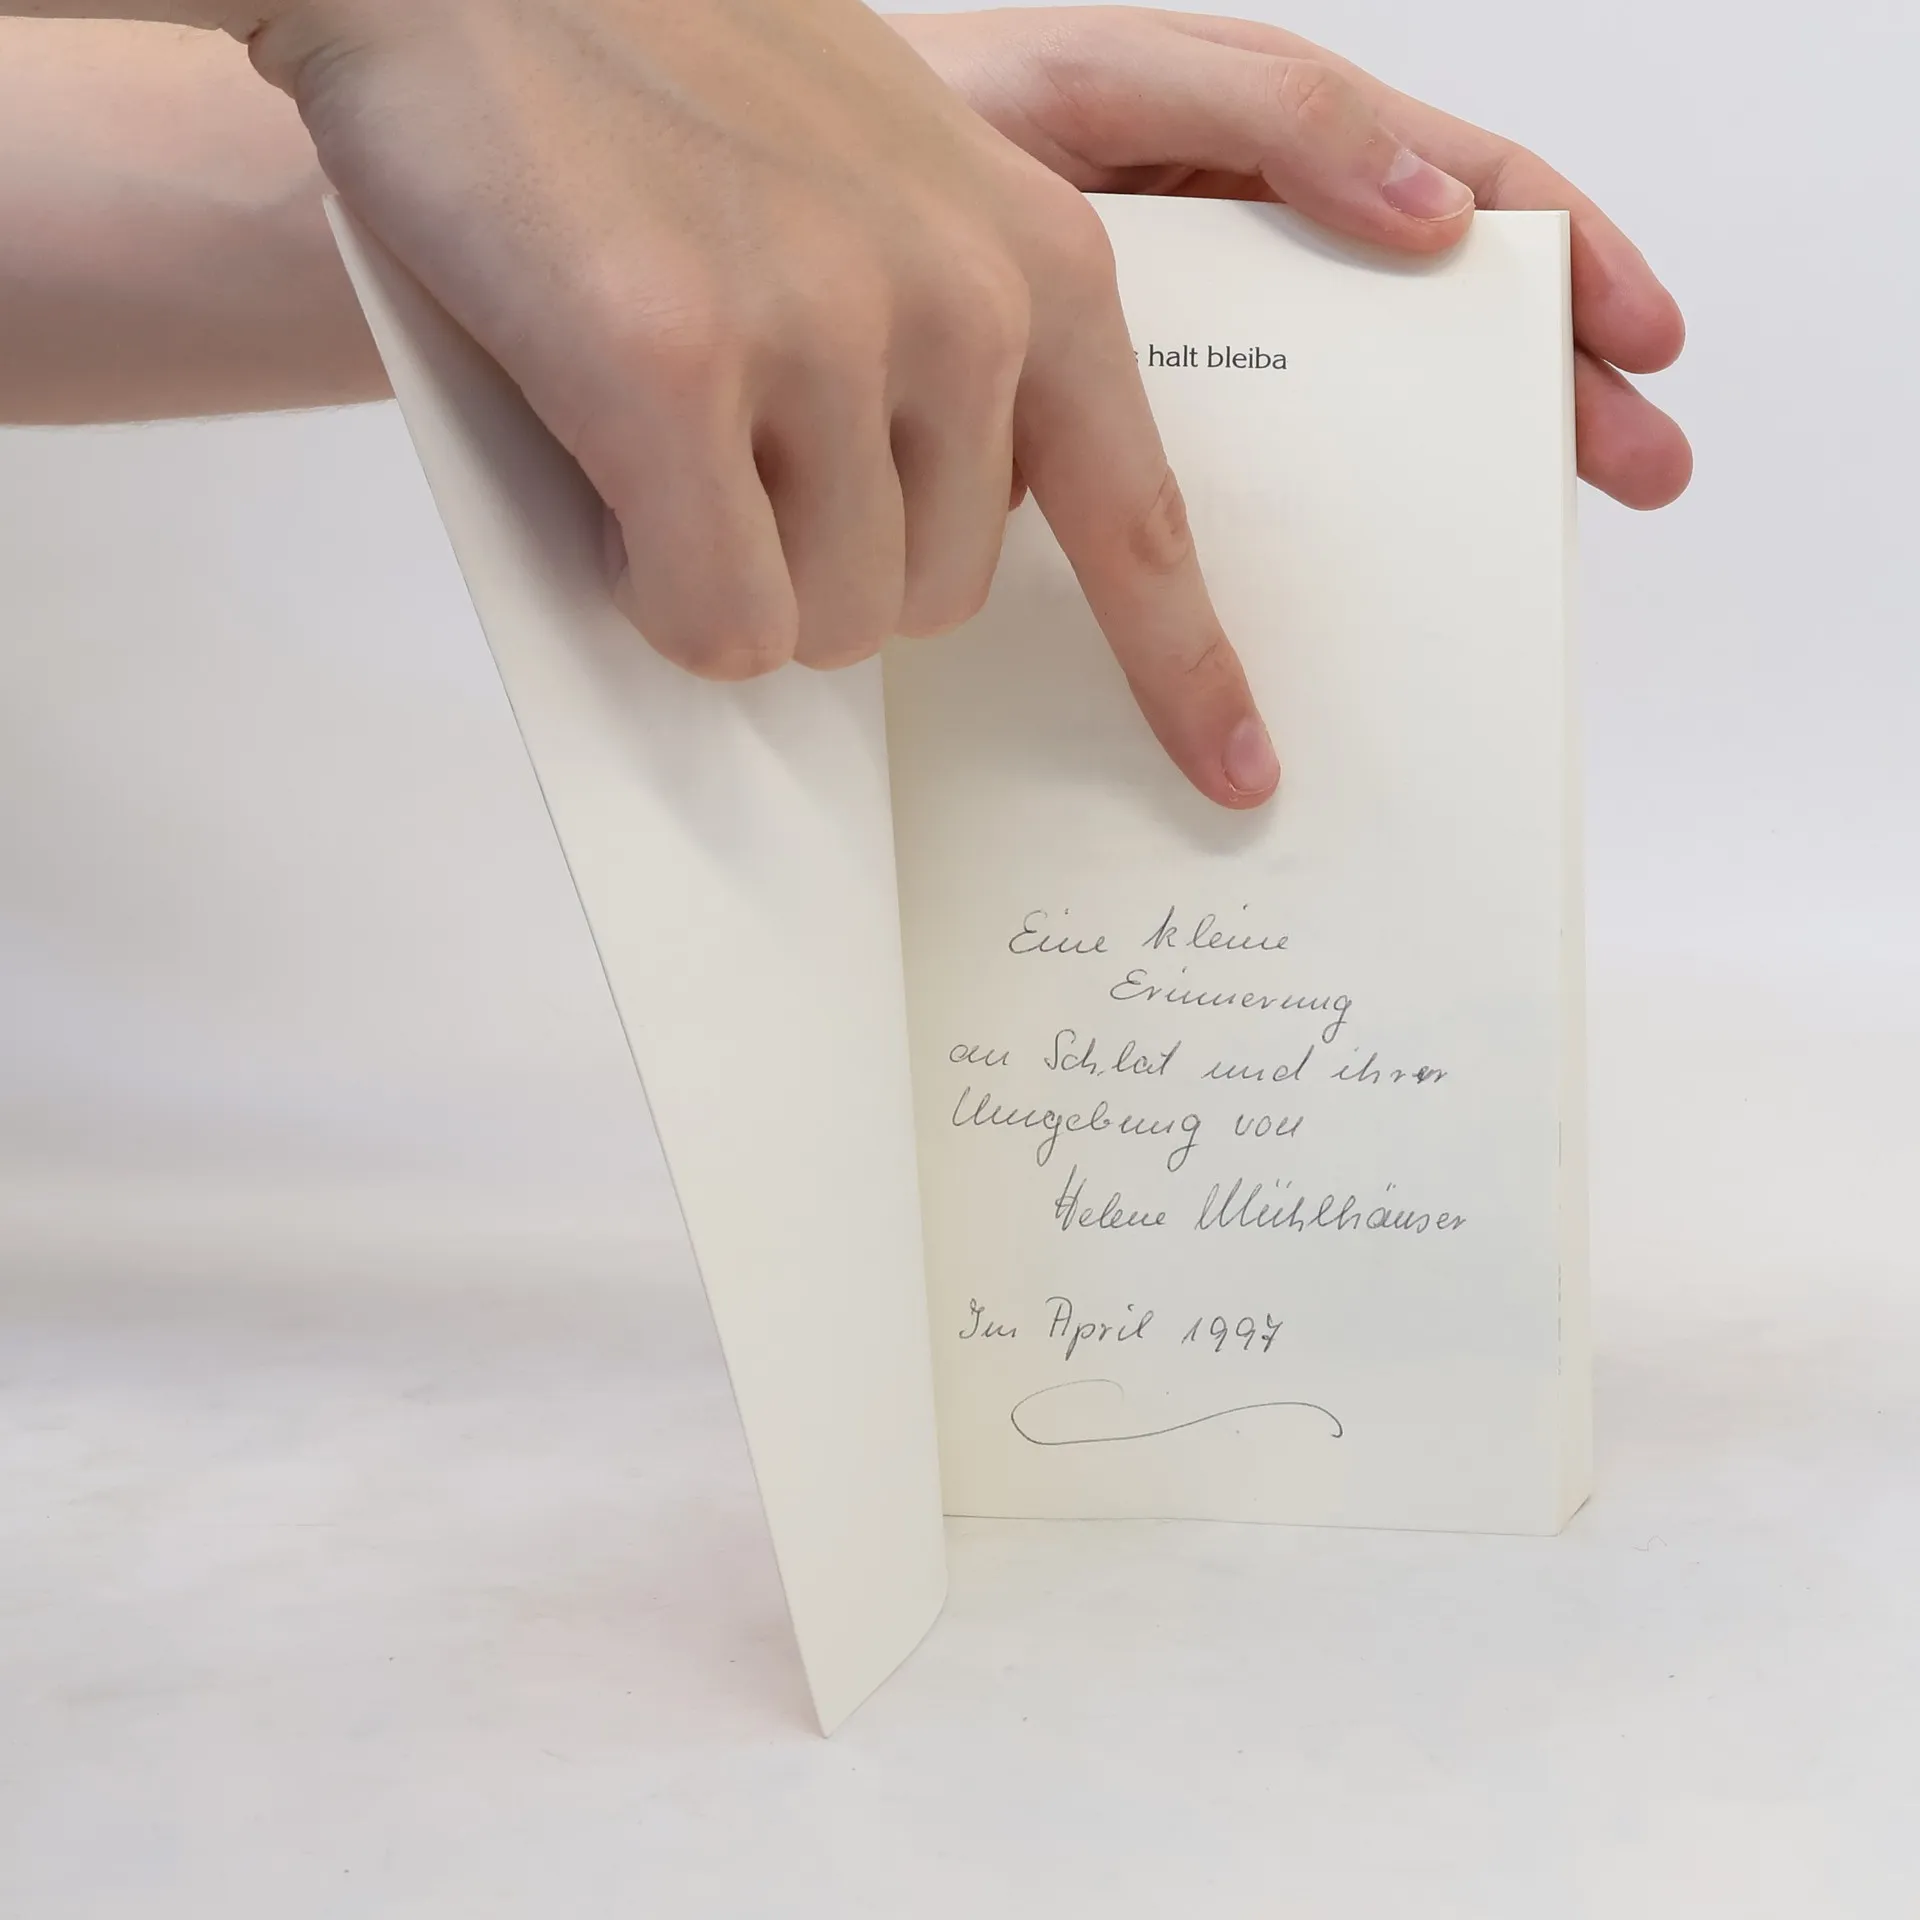 halt bleiba
Eine kleine
Erinnerung
an Schlat und ihrer
Umgebung von
Helene Mühlhäuser
Im April 1997